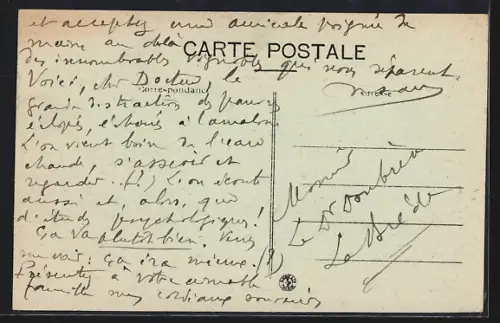 et acceptez une amicale poignée de
mains au delà
CARTE POSTALE
des innombrables vignobles qui nous séparent.
Voici, cher Docteur, le
Correspondance
Adresse
grande distraction des pauvres
éclopés, échoués à Lamalou
L'on vient boire de l'eau
chaude, s'asseoir et
regarder (!) L'on écoute
aussi et, alors, que
d'études psychologiques!
Ça va plutôt bien. Venez
me voir: ça ira mieux. (?)
Présentez à votre aimable
famille mes cordiaux souvenirs
Monsieur
Le Dr
La Brède